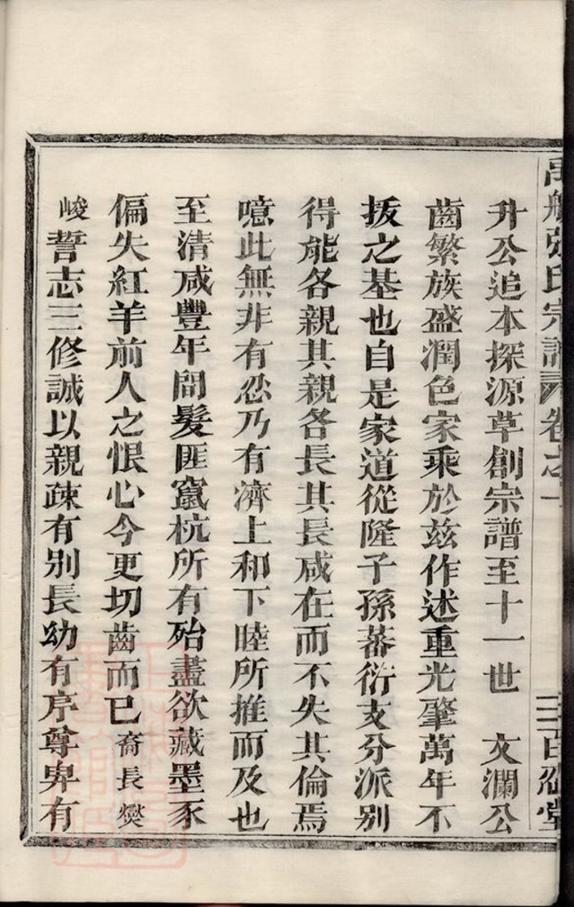 禹航張氏宗譜 卷之一 三 百忍堂
升公追本探源草創宗譜至十一世 文瀾公
齒繁族盛潤色家乘於兹作述重光肇萬年不
拔之基也自是家道從隆子孫蕃衍支分派別
得能各親其親各長其長咸在而不失其倫焉
噫此無非有忍乃有濟上和下睦所推而及也
至清咸豐年間髮匪竄杭所有殆盡欲藏墨豕
偏失紅羊前人之恨心今更切齒而已裔長爕
峻誓志三修誠以親疎有別長幼有序尊卑有